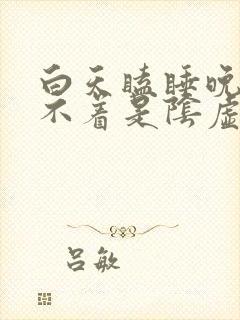 白天瞌睡晚
不着是陰虛
吕敏